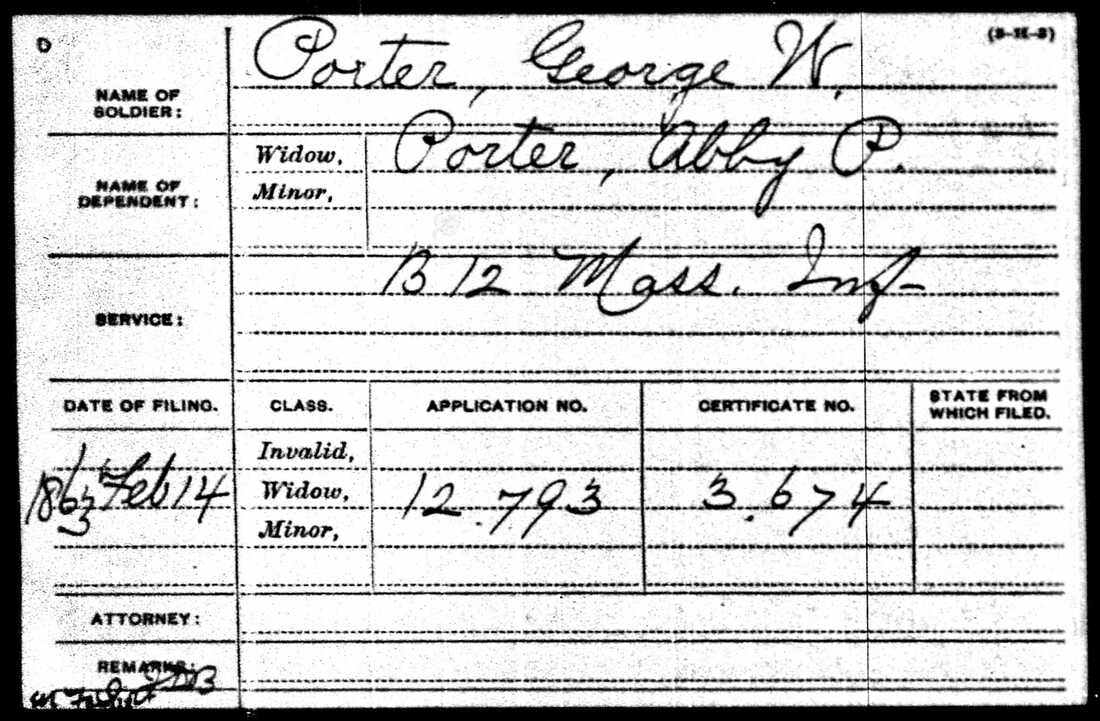 (3-11-3)
NAME OF SOLDIER: Porter, George W.
NAME OF DEPENDENT: Widow, Porter, Abby P.
Minor,
SERVICE: B 12 Mass. Inf
DATE OF FILING. CLASS. APPLICATION NO. CERTIFICATE NO. STATE FROM WHICH FILED.
Invalid,
1863 Feb 14 Widow, 12.793 3.674
Minor,
ATTORNEY:
REMARKS: